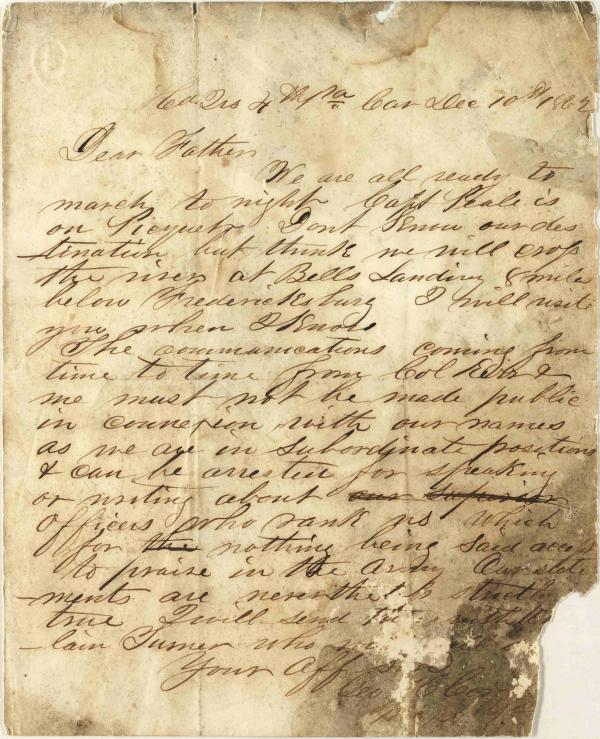 Hd Qrs 4th Pa Cav Dec 10th 1862
Dear Father
We are all ready to
march to night Capt Peale is
on Picquet. Dont Know our des
tination but think we will cross
the river at Bells Landing 8 mile
below Fredericksburg I will write
you when I Know
The communications coming from
time to time from Col Kerr &
me must not be made public
in connexion with our names
as we are in subordinate positions
& can be arrested for speaking
or writing about our superior
officers who rank us which
for the nothing being said accept
to praise in the Army Our state
ments are nevertheless strictly
true I will send this with
lain Turner who
Your Aff
Geo